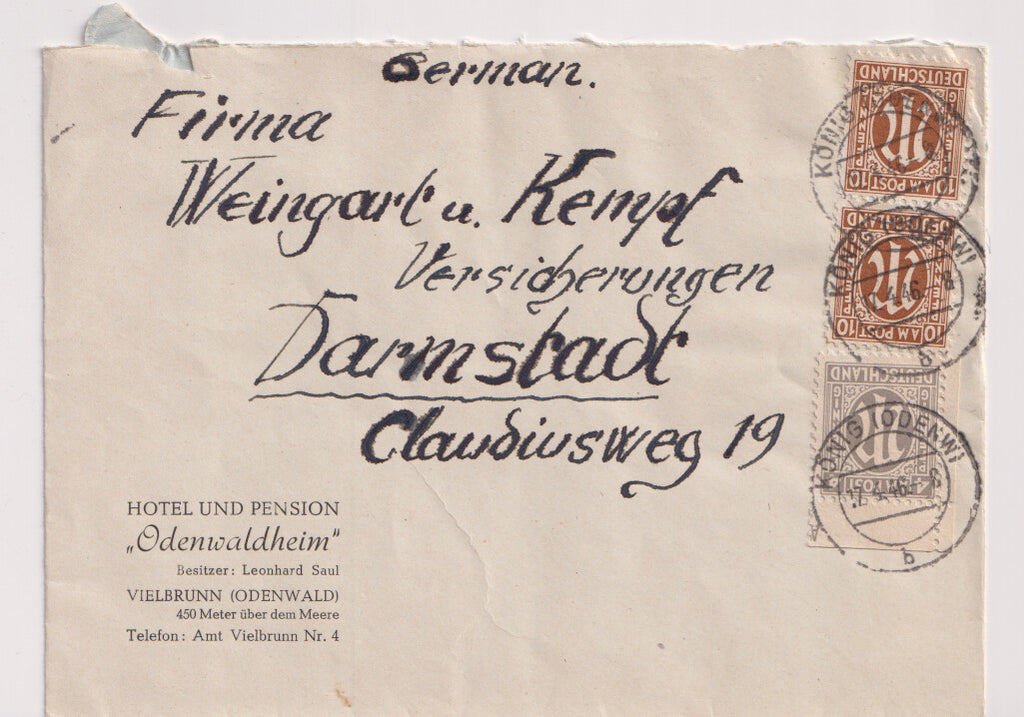 German.
Firma
Weingart u. Kempf
Versicherungen
Darmstadt
Claudiusweg 19
HOTEL UND PENSION
„Odenwaldheim"
Besitzer: Leonhard Saul
VIELBRUNN (ODENWALD)
450 Meter über dem Meere
Telefon: Amt Vielbrunn Nr. 4
DEUTSCHLAND
10 AM POST 10
KÖNIG (ODENW)
DEUTSCHLAND
10 AM POST 10
KÖNIG (ODENW)
4.46
b
DEUTSCHLAND
AM POST
KÖNIG (ODENW)
b